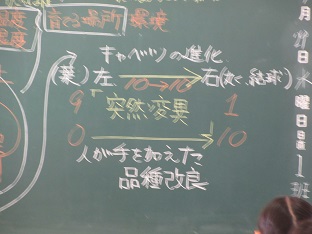 育てる場所 環境
温度
湿度
キャベツの進化
(葉) 左 10→10 右(丸く結球)
9「突然変異 1
0 10
人が手を加えた
品種改良
月
日
水
曜
日
日直
1
班